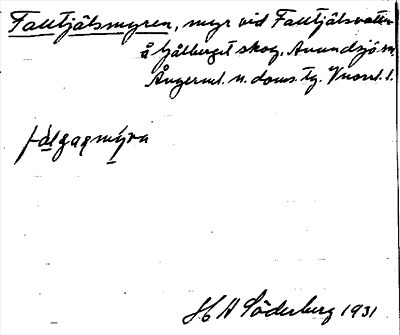 Falltjälsmyren, myr vid Falltjälsvattn
å Gålberget skog, Anundsjö sn,
Ångerml. n. doms. tg. Vnorrl. l.
fàlgaqmýra
H A Söderberg 1931